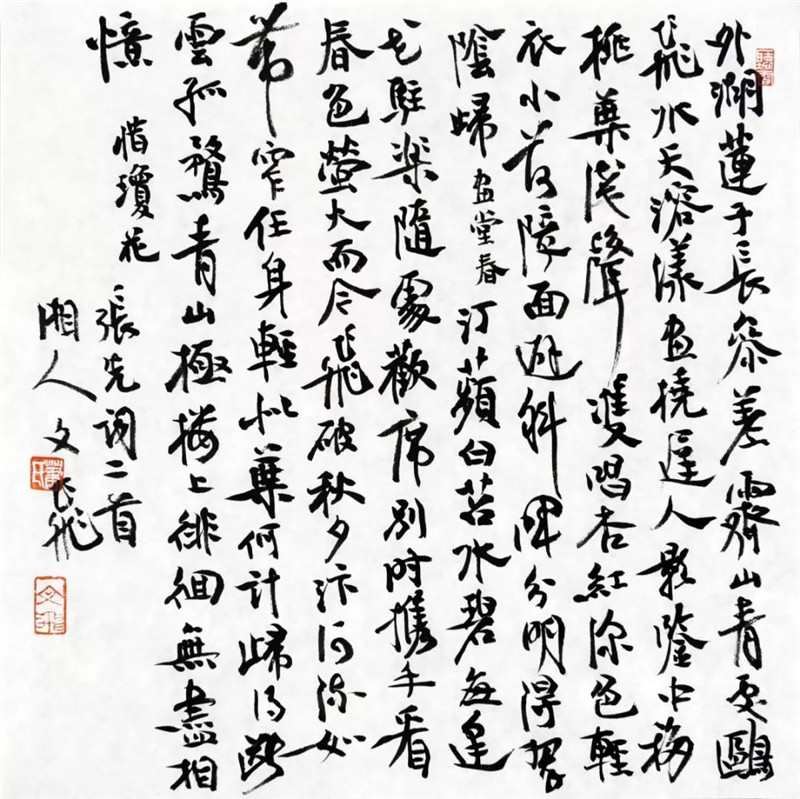 外湖蓮子長參差霽山青處鷗
飛水天溶漾畫橈遲人影鑒中移
桃葉淺聲雙唱杏紅深色輕
衣小荷障面避斜暉分明得翠
陰歸 畫堂春 汀蘋白苕水碧每逢
花駐樂隨處歡席別時攜手看
春色螢火而今飛破秋夕汴河流如
帶窄任身輕似葉何計歸得斷
雲孤鶩青山極樓上徘徊無盡相
憶 惜瓊花
張先词二首
湘人文飛
文飛